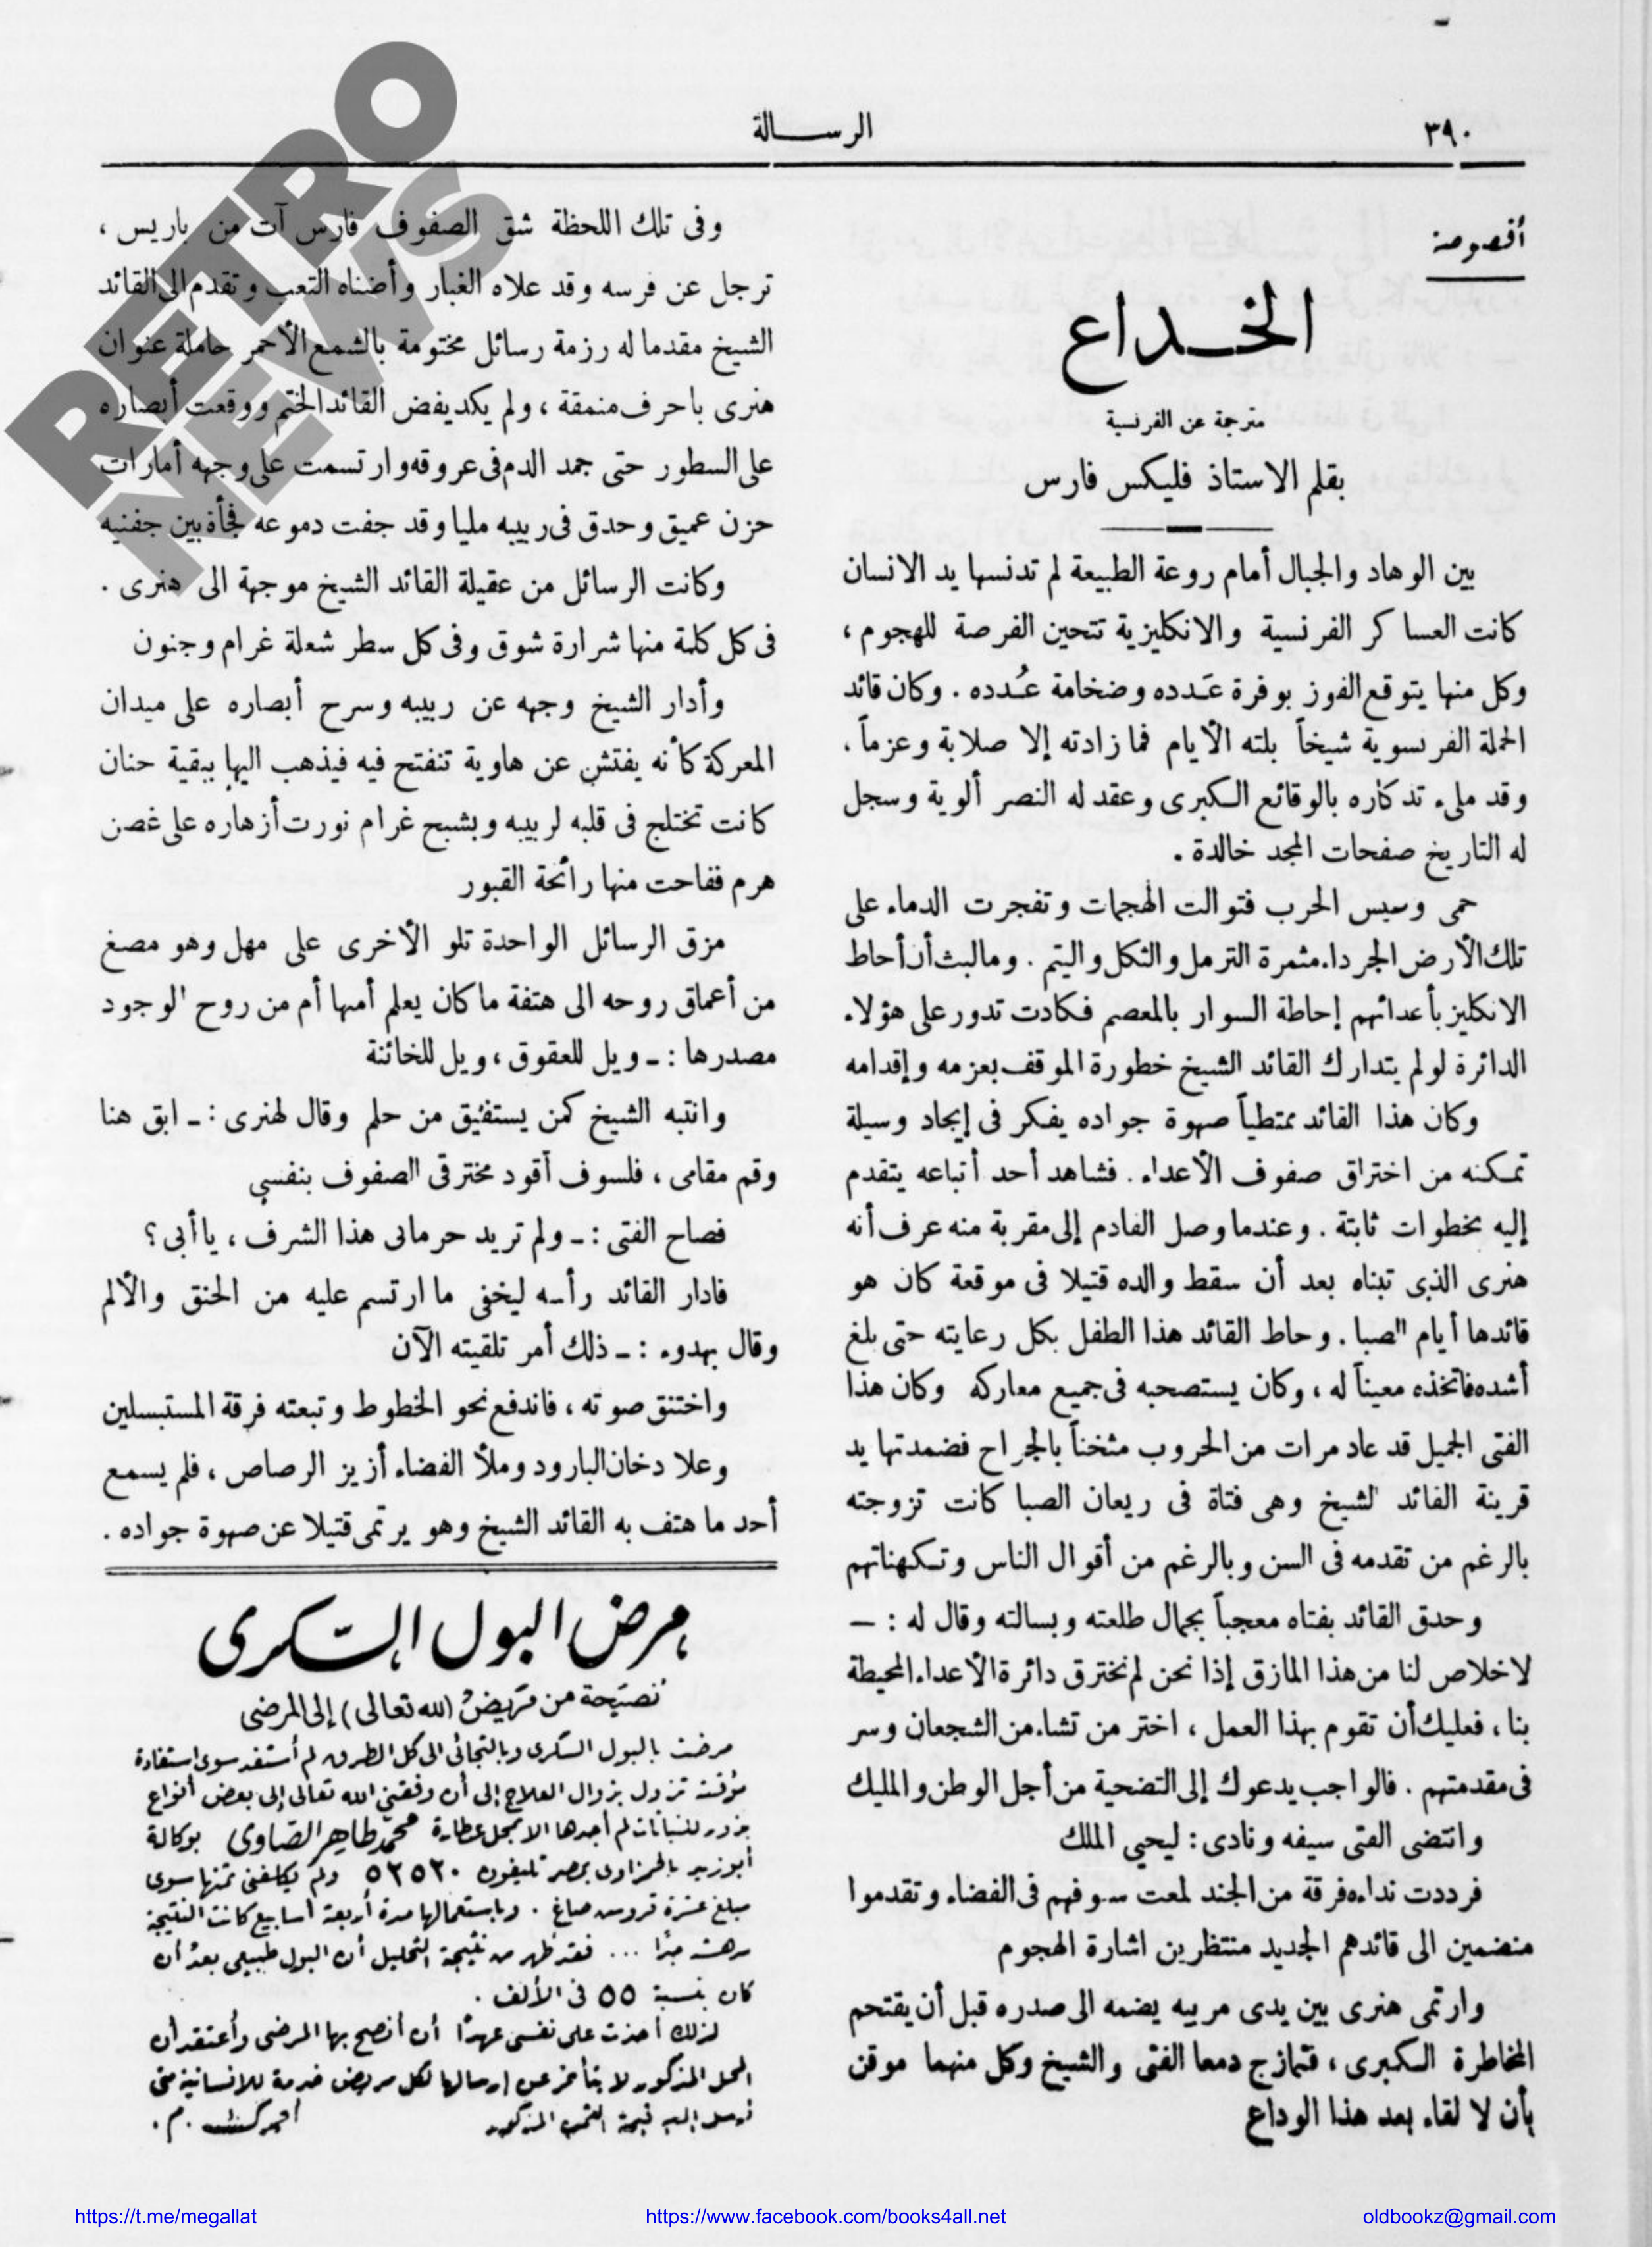 ٣٩٠
الرســـالة
أقصوصة
الخـداع
مترجمة عن الفرنسية
بقلم الاستاذ فليكس فارس
بين الوهاد والجبال أمام روعة الطبيعة لم تدنسها يد الانسان
كانت العساكر الفرنسية والانكليزية تتحين الفرصة للهجوم،
وكل منها يتوقع الفوز بوفرة عَدده وضخامة عُدده. وكان قائد
الحملة الفرنسوية شيخاً بلته الأيام فما زادته إلا صلابة وعزماً،
وقد ملىء تذكاره بالوقائع الكبرى وعقد له النصر ألوية وسجل
له التاريخ صفحات المجد خالدة.
حمى وسيس الحرب فتوالت الهجمات وتفجرت الدماء على
تلك الأرض الجرداء مثمرة الترمل والثكل واليتم. وما لبث أن أحاط
الانكليز بأعدائهم إحاطة السوار بالمعصم فكادت تدور على هؤلاء
الدائرة لو لم يتدارك القائد الشيخ خطورة الموقف بعزمه وإقدامه
وكان هذا القائد ممتطياً صهوة جواده يفكر فى إيجاد وسيلة
تمكنه من اختراق صفوف الأعداء. فشاهد أحد أتباعه يتقدم
إليه بخطوات ثابتة. وعندما وصل القادم إلى مقربة منه عرف أنه
هنرى الذى تبناه بعد أن سقط والده قتيلا فى موقعة كان هو
قائدها أيام الصبا. وحاط القائد هذا الطفل بكل رعايته حتى بلغ
أشده فاتخذه معيناً له، وكان يستصحبه فى جميع معاركه وكان هذا
الفتى الجميل قد عاد مرات من الحروب مثخناً بالجراح فضمدتها يد
قرينة القائد الشيخ وهى فتاة فى ريعان الصبا كانت تزوجته
بالرغم من تقدمه فى السن وبالرغم من أقوال الناس وتكهناتهم
وحدق القائد بفتاه معجباً بجمال طلعته وبسالته وقال له : —
لا خلاص لنا من هذا المازق إذا نحن لم نخترق دائرة الأعداء المحيطة
بنا، فعليك أن تقوم بهذا العمل، اختر من تشاء من الشجعان وسر
فى مقدمتهم. فالواجب يدعوك إلى التضحية من أجل الوطن والمليك
وانتضى الفتى سيفه ونادى: ليحيى الملك
فرددت نداءه فرقة من الجند لمعت سيوفهم فى الفضاء وتقدموا
منضمين الى قائدهم الجديد منتظرين اشارة الهجوم
وارتمى هنرى بين يدى مربيه يضمه الى صدره قبل أن يقتحم
المخاطرة الكبرى، فتمازج دمعا الفتى والشيخ وكل منهما موقن
بأن لا لقاء بعد هذا الوداع
وفى تلك اللحظة شق الصفوف فارس آت من باريس،
ترجل عن فرسه وقد علاه الغبار وأضناه التعب وتقدم الى القائد
الشيخ مقدما له رزمة رسائل مختومة بالشمع الأحمر حاملة عنوان
هنرى باحرف منمقة، ولم يكد يفض القائد الختم ووقعت أبصاره
على السطور حتى جمد الدم فى عروقه وارتسمت على وجهه أمارات
حزن عميق وحدق فى ربيبه مليا وقد جفت دموعه فجأة بين جفنيه
وكانت الرسائل من عقيلة القائد الشيخ موجهة الى هنرى.
فى كل كلمة منها شرارة شوق وفى كل سطر شعلة غرام وجنون
وأدار الشيخ وجهه عن ربيبه وسرح أبصاره على ميدان
المعركة كأنه يفتش عن هاوية تنفتح فيه فيذهب اليها ببقية حنان
كانت تختلج فى قلبه لربيبه وبشبح غرام نورت أزهاره على غصن
هرم ففاحت منها رائحة القبور
مزق الرسائل الواحدة تلو الأخرى على مهل وهو مصغ
من أعماق روحه الى هتفة ما كان يعلم أمنها أم من روح الوجود
مصدرها : ـ ويل للعقوق، ويل للخائنة
وانتبه الشيخ كمن يستفيق من حلم وقال لهنرى : ـ ابق هنا
وقم مقامى، فلسوف أقود مخترقى الصفوف بنفسى
فصاح الفتى : ـ ولم تريد حرمانى هذا الشرف، يا أبى؟
فادار القائد رأسه ليخفى ما ارتسم عليه من الحنق والألم
وقال بهدوء : ـ ذلك أمر تلقيته الآن
واختنق صوته، فاندفع نحو الخطوط وتبعته فرقة المستبسلين
وعلا دخان البارود وملأ الفضاء أزيز الرصاص، فلم يسمع
أحد ما هتف به القائد الشيخ وهو يرتمى قتيلا عن صهوة جواده.
مرض البول السكرى
نصيحة من مريض (لله تعالى) إلى المرضى
مرضت بالبول السكرى وبالتجائى الى كل الطرق لم أستفد سوى استفادة
مؤقتة تزول بزوال العلاج إلى أن وفقنى الله تعالى إلى بعض أنواع
بذور للنباتات لم أجدها الا بمحل عطارة محمد طاهر الصاوى بوكالة
أبوزيد بالحمزاوى بمصر تليفون ٥٢٥٢٠ ولم يكلفنى ثمنها سوى
مبلغ عشرة قروس صاغ. وباستعمالها مدة أربعة أسابيع كانت النتيجة
مدهشة جدًا ... فقد ظهر من نتيجة التحليل أن البول طبيعى بعد أن
كان بنسبة ٥٥ فى الألف.
لذلك أخذت على نفسى عهدًا أن أنصح بها المرضى وأعتقد أن
المحل المذكور لا يتأخر عن إرسالها لكل مريض خدمة للانسانية متى
إليه قيمة الثمن المذكور
RETRO
NEWS
https://t.me/megallat
https://www.facebook.com/books4all.net
oldbookz@gmail.com